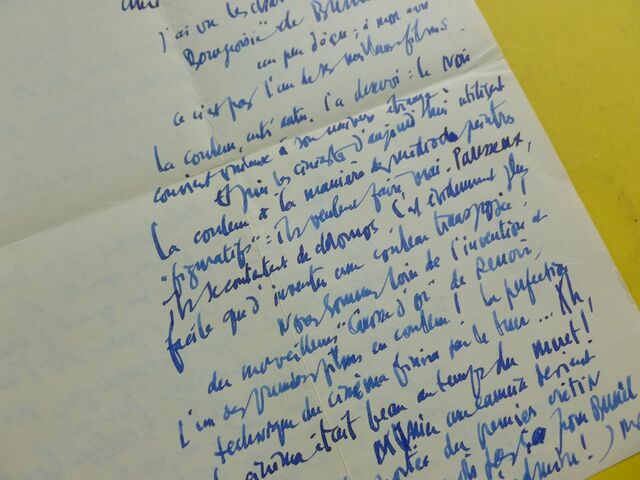 J'ai vu les
Bourgeoisie" de Buñuel
un peu déçu : à mon avis
ce n'est pas l'un de ses meilleurs films.
La couleur, entre autres, l'a desservi : le noir
convient mieux à son univers étrange.
Et puis les cinéastes d'aujourd'hui utilisent
la couleur à la manière des peintres
"figuratifs" : ils veulent faire vrai. Paresseux,
ils se contentent de chromos. C'est évidemment plus
facile que d'inventer une couleur transposée !
Nous sommes loin de l'invention et
du merveilleux "Carrosse d'or" de Renoir,
L'un des premiers films en couleur ! La perfection
technique du cinéma finira par le tuer... Ah,
cinéma était beau au temps du muet !
une caméra devient
du premier crétin
pour Buñuel